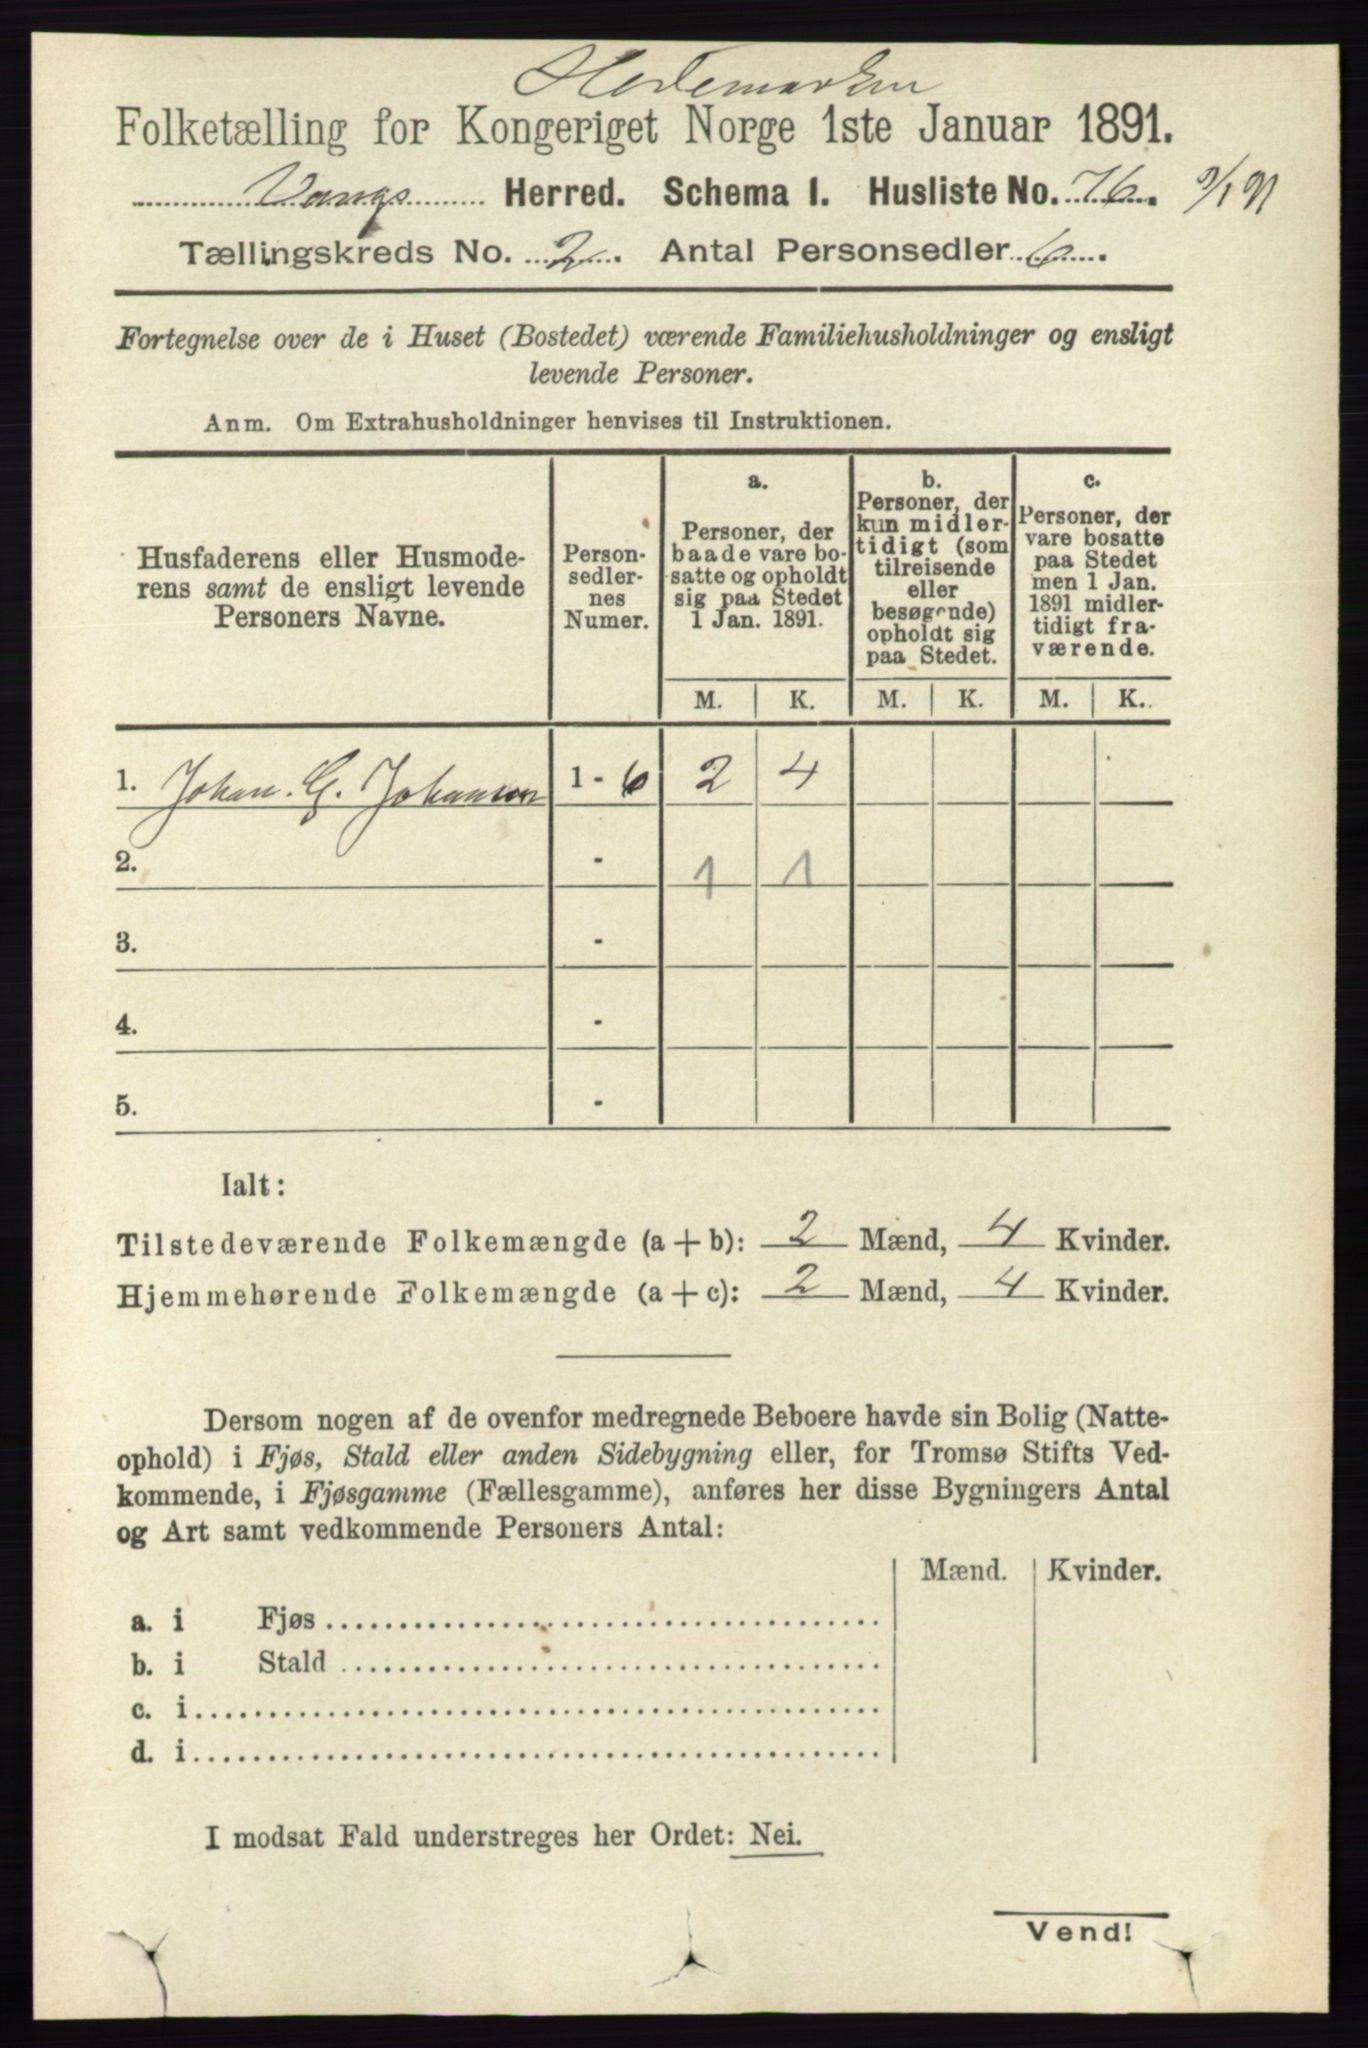 Hedemarken
Folketælling for Kongeriget Norge 1ste Januar 1891.
Vangs Herred. Schema I. Husliste No. 76. 9/1 91
Tællingskreds No. 2. Antal Personsedler 6.
Fortegnelse over de i Huset (Bostedet) værende Familiehusholdninger og ensligt
levende Personer.
Anm. Om Extrahusholdninger henvises til Instruktionen.
Husfaderens eller Husmode-
rens samt de ensligt levende
Personers Navne.
Person-
sedler-
nes
Numer.
a.
Personer, der
baade vare bo-
satte og opholdt
sig paa Stedet
1 Jan. 1891.
b.
Personer, der
kun midler-
tidigt (som
tilreisende
eller
besøgende)
opholdt sig
paa Stedet.
c.
Personer, der
vare bosatte
paa Stedet
men 1 Jan.
1891 midler-
tidigt fra-
værende.
M. K. M. K. M. K.
1. Johan. G. Johanson 1 - 6 2 4
2. - 1 1
3. -
4. -
5. -
Ialt:
Tilstedeværende Folkemængde (a + b): 2 Mænd, 4 Kvinder.
Hjemmehørende Folkemængde (a + c): 2 Mænd, 4 Kvinder.
Dersom nogen af de ovenfor medregnede Beboere havde sin Bolig (Natte-
ophold) i Fjøs, Stald eller anden Sidebygning eller, for Tromsø Stifts Ved-
kommende, i Fjøsgamme (Fællesgamme), anføres her disse Bygningers Antal
og Art samt vedkommende Personers Antal:
Mænd. Kvinder.
a. i Fjøs
b. i Stald
c. i
d. i
I modsat Fald understreges her Ordet: Nei.
Vend!